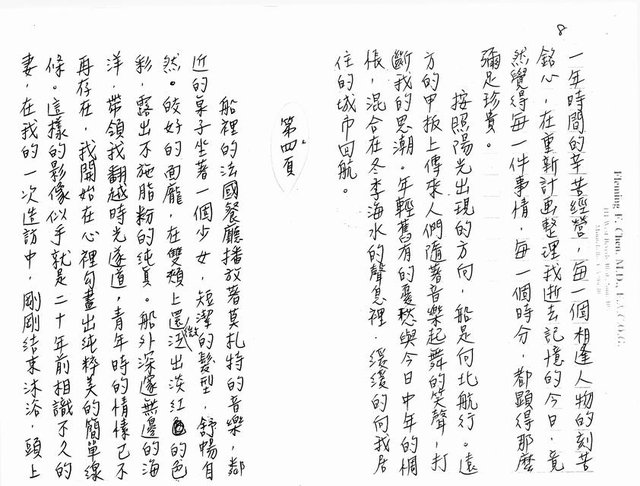 8
一年時間的辛苦經營，每一個相逢人物的刻苦
銘心，在重新計画整理我逝去記憶的今日，竟
然覺得每一件事情，每一個時分，都顯得那麼
彌足珍貴。
按照陽光出現的方向，船是向北航行。遠
方的甲板上傳來人們隨著音樂起舞的笑聲，打
斷我的思潮。年輕舊有的憂愁與今日中年的惆
悵，混合在冬季海水的聲息裡，緩緩的向我居
住的城市回航。
第四頁
船裡的法國餐廳播放著莫扎特的音樂，鄰
近的桌子坐著一個少女，短潔的髮型，舒暢自
然。皎好的面龐，在雙頰上還泛出淡紅色的色
彩，露出不施脂粉的純真。船外深邃無邊的海
洋，帶領我翻越時光遂道，青年時的情懷已不
再存在，我開始在心裡勾畫出純粹美的簡單線
條。這樣的影像似乎就是二十年前相識不久的
妻，在我的一次造訪中，剛剛結束沐浴，頭上
Fleming F. Chen, M.D., F.A.C.O.G.